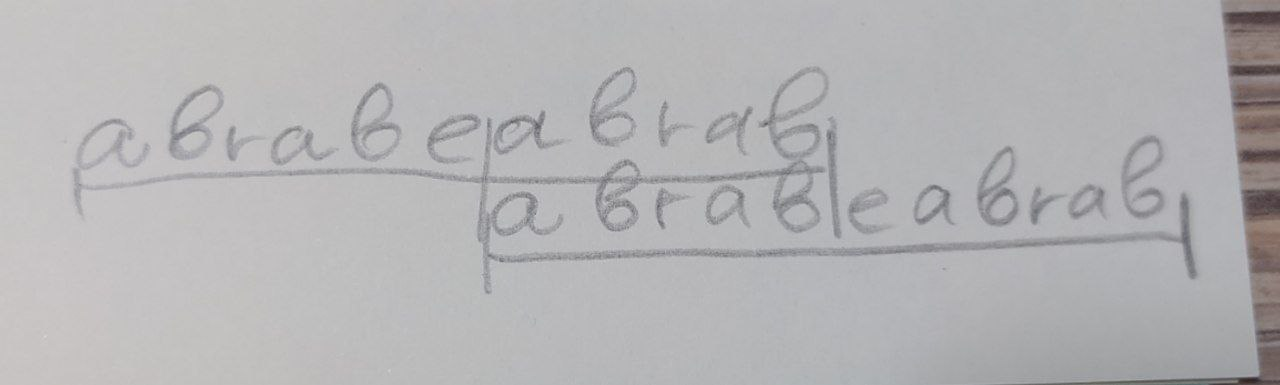 abrabeabrab
abrabeabrab